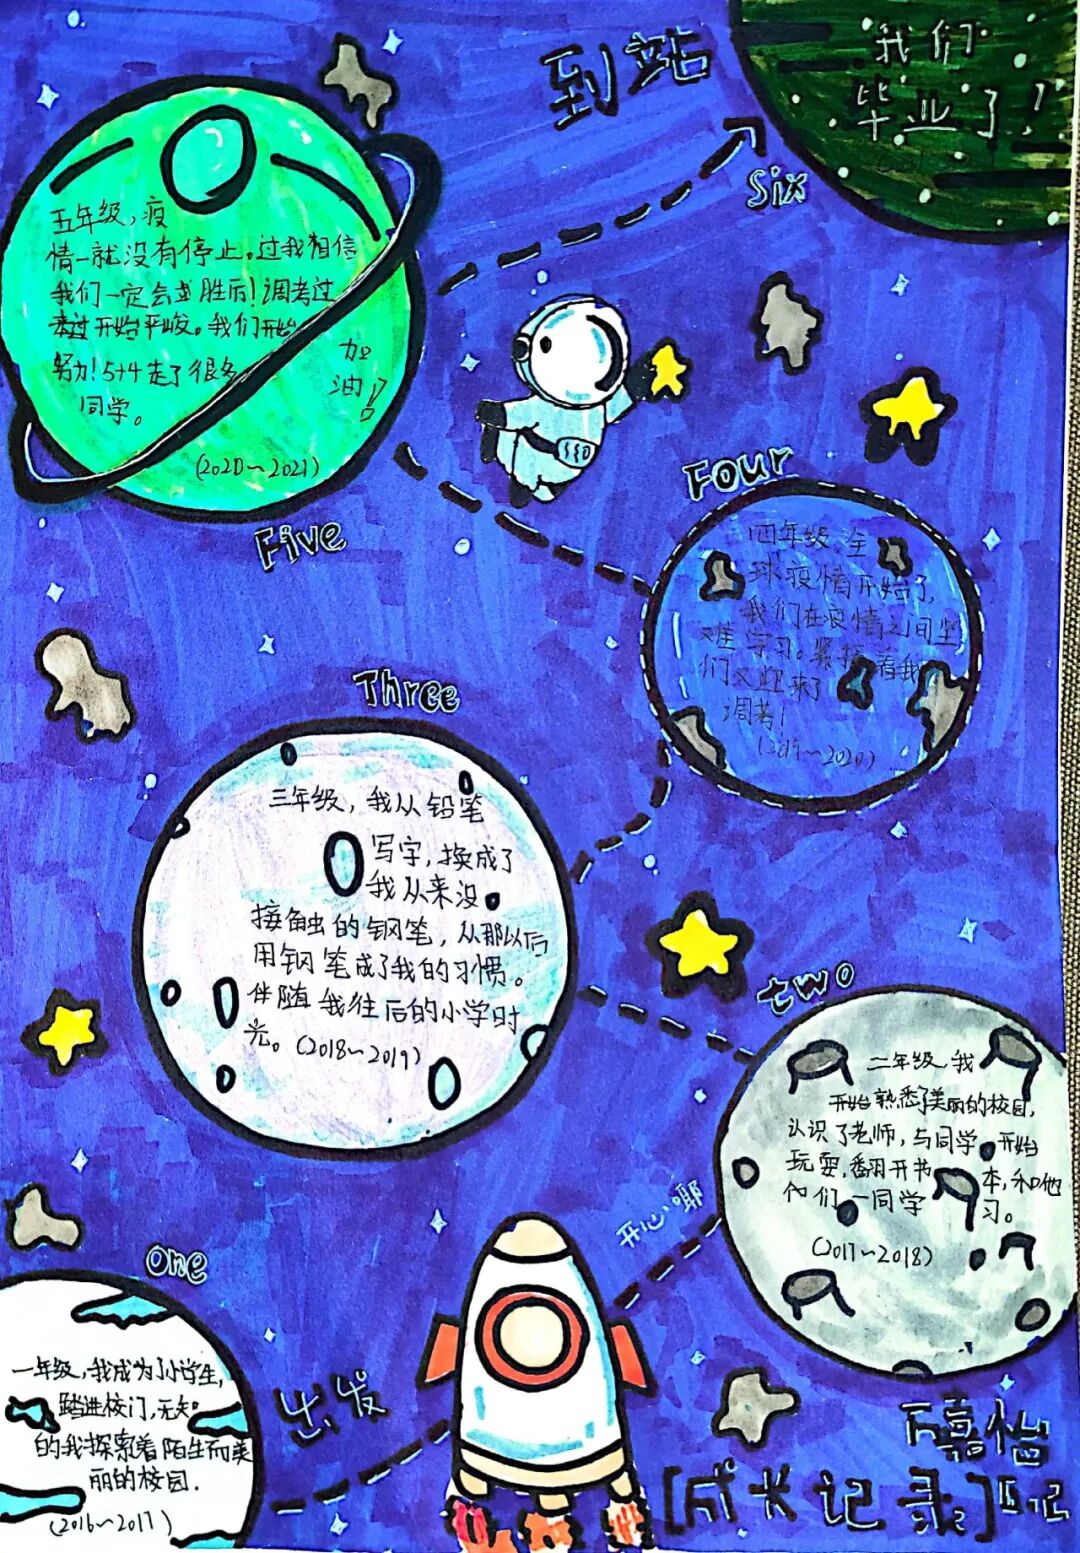 到站
我们
毕业了！
Six
五年级，疫
情一就没有停止。过我相信
我们一定会战胜后！调考过
过开始平峻。我们开始
努力！5+4走了很多
同学。
加
油！
(2020~2021)
Five
Four
四年级，全
球疫情开始了，
我们在疫情之间坚
难学习。紧接着我
们又迎来了
调考！
(2019~2020)
Three
三年级，我从铅笔
写字，换成了
我从来没
接触的钢笔，从那以后
用钢笔成了我的习惯。
伴随我往后的小学时
光。(2018~2019)
two
二年级，我
开始熟悉了美丽的校园，
认识了老师，与同学开始
玩耍，翻开书本，和他
们一同学习。
(2017~2018)
开心哪
One
一年级，我成为了小学生，
踏进校门，无知
的我探索着陌生而美
丽的校园．
(2016~2017)
出发
嘉怡
[成长记录]